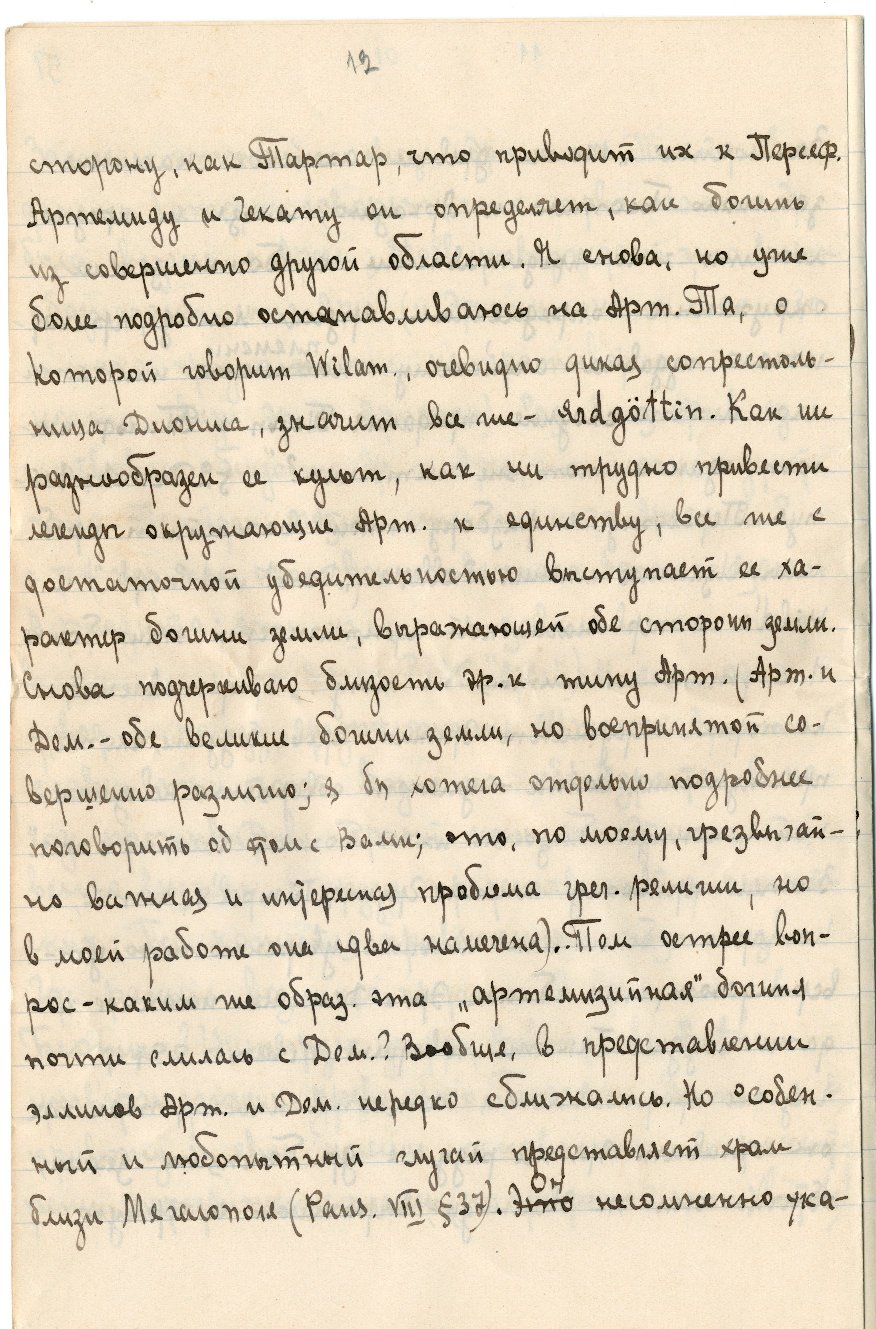 12
сторону, как Тартар, что приводит их к Персеф.
Артемиду и Гекату он определяет, как богинь
из совершенно другой области. Я снова, но уже
более подробно останавливаюсь на Арт. Та, о
которой говорит Wilam., очевидно дикая сопрестоль-
ница Диониса, значит все же - Erdgöttin. Как ни
разнообразен ее культ, как ни трудно привести
легенды окружающие Арт. к единству, все же с
достаточной убедительностью выступает ее ха-
рактер богини земли, выражающей обе стороны земли.
Снова подчеркиваю близость эр. к типу Арт. (Арт. и
Дем. - обе великие богини земли, но воспринятой со-
вершенно различно; я бы хотела отдельно подробнее
поговорить об этом с Вами; это, по моему, чрезвычай-
но важная и интересная проблема греч. религии, но
в моей работе она едва намечена). Тем острее воп-
рос - каким же образ. эта „артемизийная" богиня
почти слилась с Дем.? Вообще, в представлении
эллинов Арт. и Дем. нередко сближались. Но особен-
ный и любопытный случай представляет храм
близи Мегалополя (Paus. VIII § 37). Он несомненно ука-